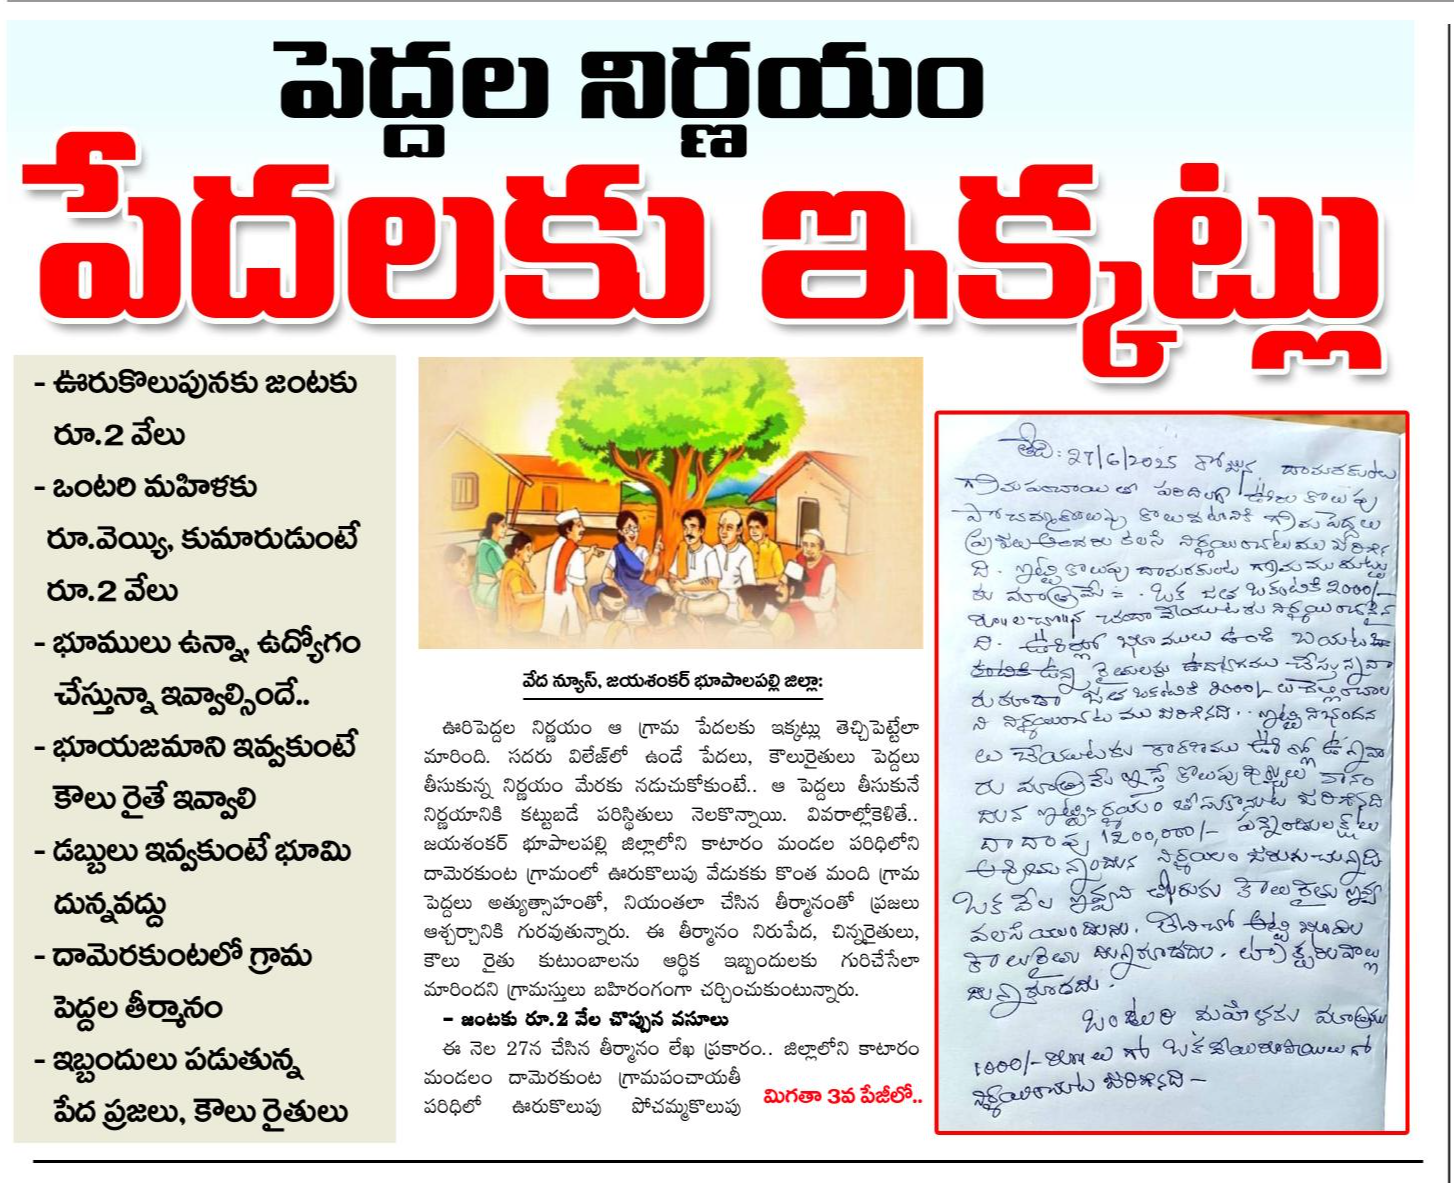 పెద్దల నిర్ణయం
పేదలకు ఇక్కట్లు
- ఊరుకొలుపునకు జంటకు
రూ.2 వేలు
- ఒంటరి మహిళకు
రూ.వెయ్యి, కుమారుడుంటే
రూ.2 వేలు
- భూములు ఉన్నా, ఉద్యోగం
చేస్తున్నా ఇవ్వాల్సిందే..
- భూయజమాని ఇవ్వకుంటే
కౌలు రైతే ఇవ్వాలి
- డబ్బులు ఇవ్వకుంటే భూమి
దున్నవద్దు
- దామెరకుంటలో గ్రామ
పెద్దల తీర్మానం
- ఇబ్బందులు పడుతున్న
పేద ప్రజలు, కౌలు రైతులు
వేద న్యూస్, జయశంకర్ భూపాలపల్లి జిల్లా:
ఊరిపెద్దల నిర్ణయం ఆ గ్రామ పేదలకు ఇక్కట్లు తెచ్చిపెట్టేలా
మారింది. సదరు విలేజ్‌లో ఉండే పేదలు, కౌలురైతులు పెద్దలు
తీసుకున్న నిర్ణయం మేరకు నడుచుకోకుంటే.. ఆ పెద్దలు తీసుకునే
నిర్ణయానికి కట్టుబడే పరిస్థితులు నెలకొన్నాయి. వివరాల్లోకెళితే..
జయశంకర్ భూపాలపల్లి జిల్లాలోని కాటారం మండల పరిధిలోని
దామెరకుంట గ్రామంలో ఊరుకొలుపు వేడుకకు కొంత మంది గ్రామ
పెద్దలు అత్యుత్సాహంతో, నియంతలా చేసిన తీర్మానంతో ప్రజలు
ఆశ్చర్చానికి గురవుతున్నారు. ఈ తీర్మానం నిరుపేద, చిన్నరైతులు,
కౌలు రైతు కుటుంబాలను ఆర్థిక ఇబ్బందులకు గురిచేసేలా
మారిందని గ్రామస్తులు బహిరంగంగా చర్చించుకుంటున్నారు.
- జంటకు రూ.2 వేల చొప్పున వసూలు
ఈ నెల 27న చేసిన తీర్మానం లేఖ ప్రకారం.. జిల్లాలోని కాటారం
మండలం దామెరకుంట గ్రామపంచాయతీ
పరిధిలో ఊరుకొలుపు పోచమ్మకొలుపు
మిగతా 3వ పేజీలో..
తేది: 27/6/2025 రోజున దామరకుంట
గ్రామపంచాయితీ పరిదిలో ఊరు కొలుపు
గ్రామ పెద్దలు
ప్రజలు అందరు కలసి నిర్ణయించటము జరిగిన
ది. ఇట్టి కొలుపు దామరకుంట గ్రామము
కు మాత్రమే. ఒక జంట ఒకంటికి 2000/-
చందా వేయుటకు
ది. ఊరిల్లో భూములు ఉండి బయట
ఉన్న రైతులకు ఉద్యోగము చేస్తున్నవా
రు కూడా జంట ఒకంటికి 2000/- లు చెల్లించాల
ని నిర్ణయించటము జరిగినది. ఇట్టి నిభందన
లు చేయుటకు కారణము ఊర్లో ఉన్నవా
రు మాత్రమే ఇస్తే కొలుపు
ఇట్టి నిర్ణయం తీసుకొనుట జరిగినది
దాదాపు 1200,000/- పన్నెండు లక్షలు
నిర్ణయం జరుగుచున్నది
ఒక వేల ఇవ్వని కౌలు రైతు ఇవ్వ
వలసి యుండును. లేనిచో అట్టి భూమిల
కౌలురైతు దున్నికూడదు. ట్రాక్టరు వాల్లు
దున్నకూడదు.
ఒంటరి మహిళకు మాత్రము
1000/- రూ౹౹లు గా ఒక వేయి రూపాయిలు గా
నిర్ణయించుట జరిగినది -